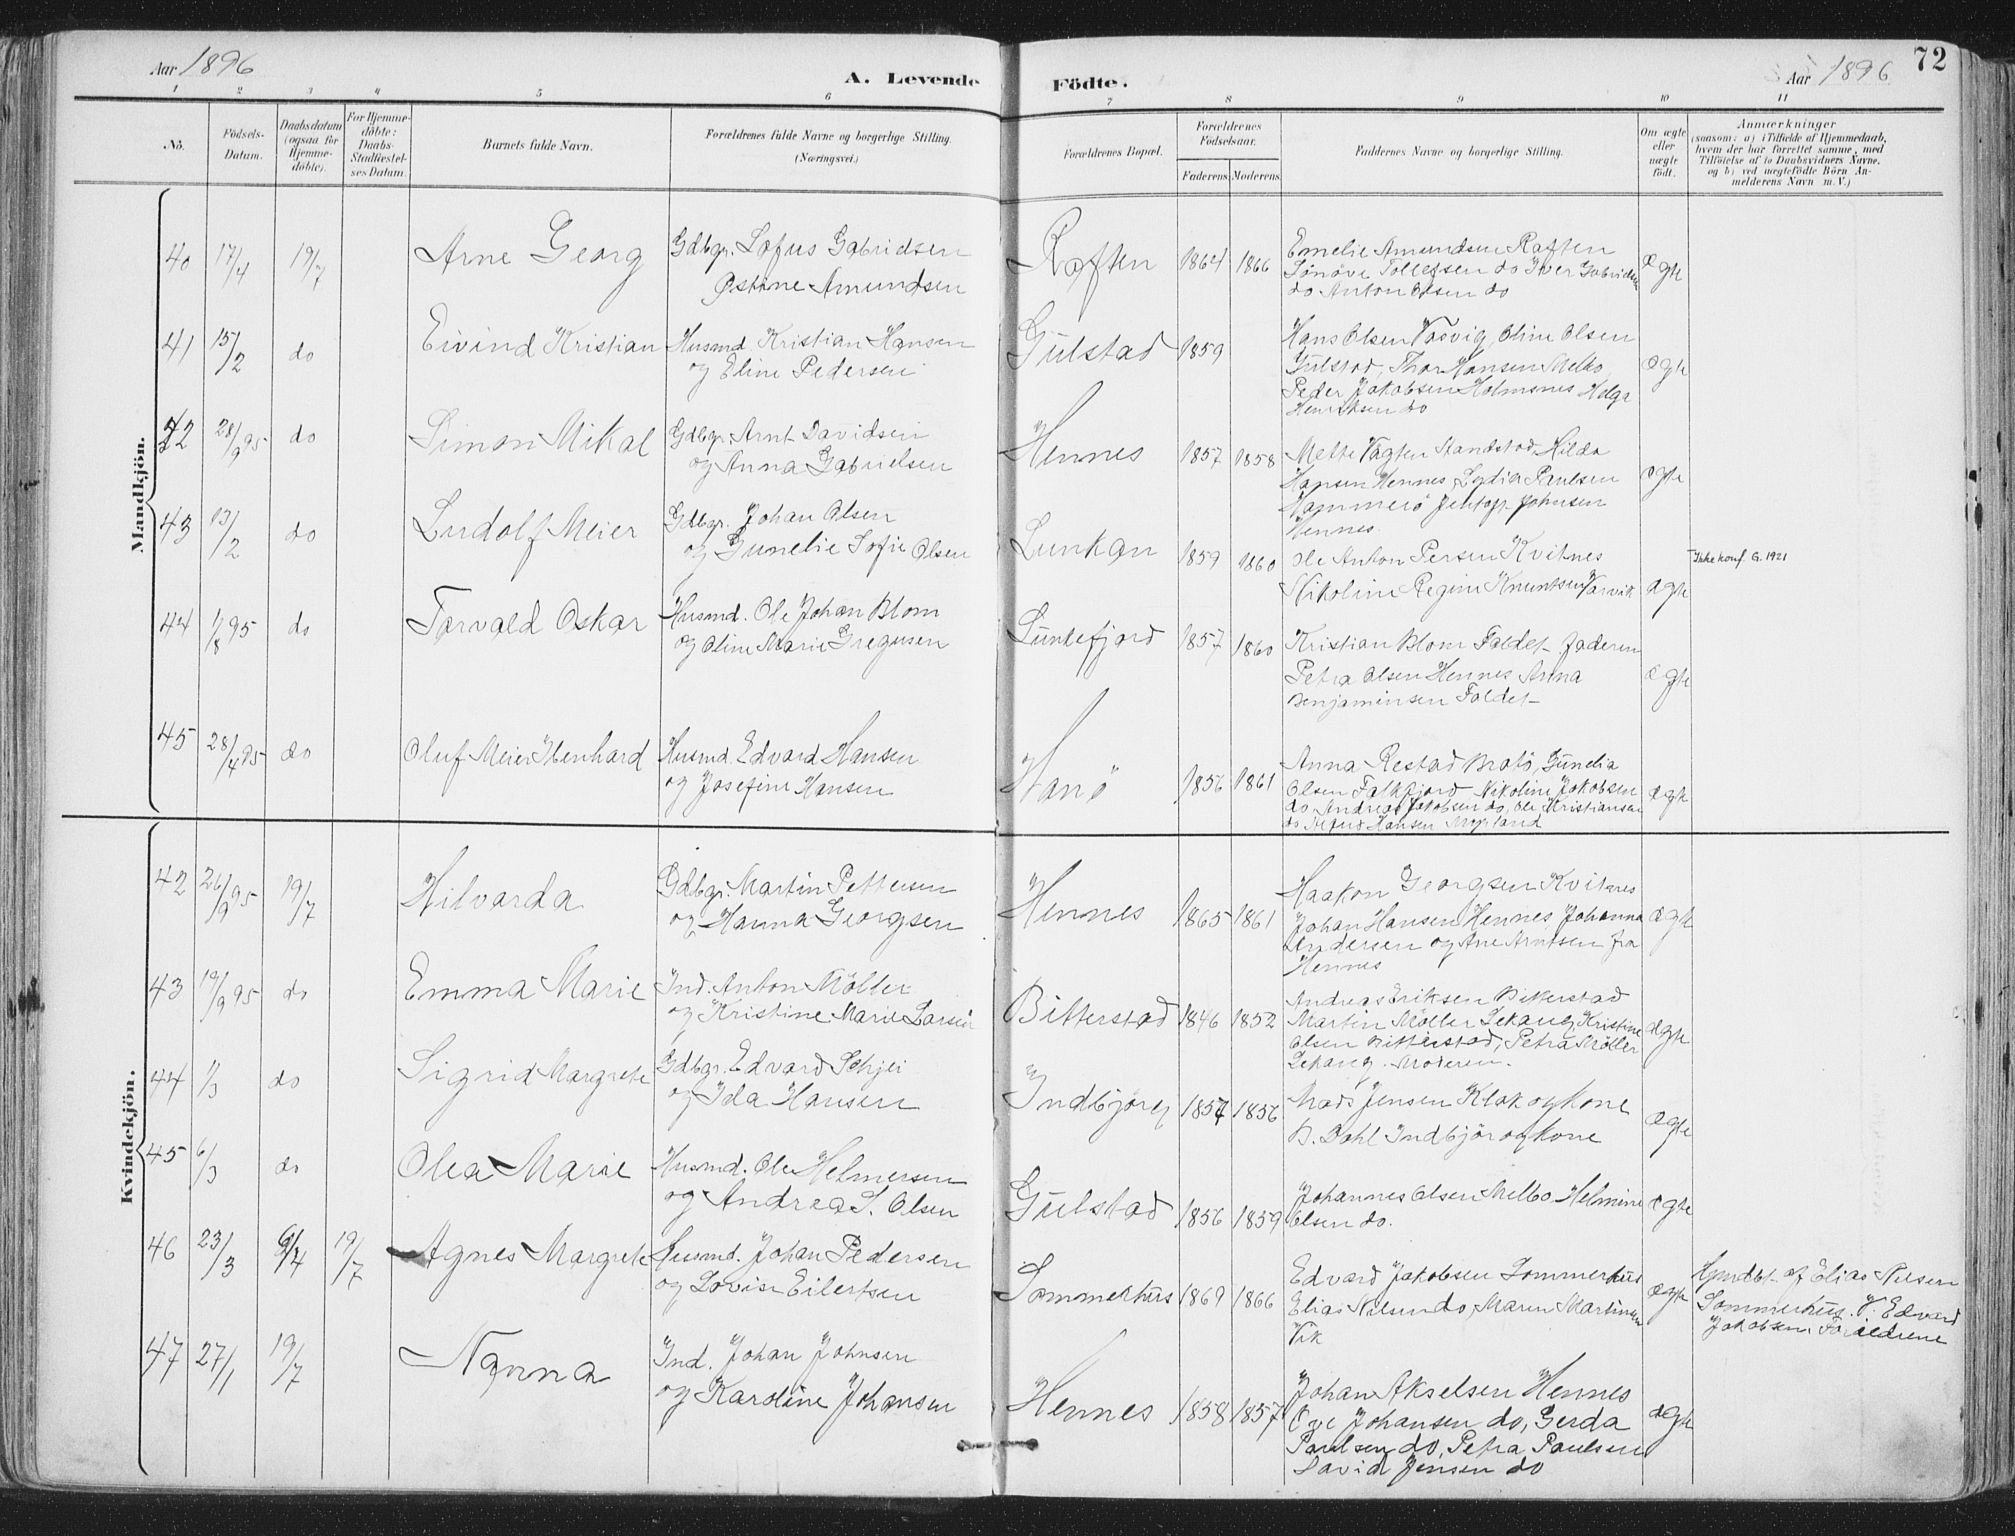 Aar 1896
A. Levende Födte.
Aar 1896
72
1 2 3 4 5 6 7 8 9 10 11
No.
Födsels-
Datum.
Daabsdatum
(ogsaa for
Hjemme-
döbte).
For Hjemme-
döbte:
Daabs-
Stadfæstel-
ses Datum.
Barnets fulde Navn.
Forældrenes fulde Navne og borgerlige Stilling.
(Næringsvei.)
Forældrenes Bopæl.
Forældrenes
Födselsaar.
Faderens Moderens
Faddernes Navne og borgerlige Stilling.
Om ægte
eller
uægte
födt.
Anmærkninger
(saasom: a) i Tilfælde af Hjemmedaab,
hvem der har forrettet samme, med
Tilföielse af to Daabsvidners Navne,
og b) ved uægtefödte Börn An-
melderens Navn m. V.)
Mandkjön.
40 17/4 19/7 Arne Georg
Gdbgr. Lofus Gabrielsen
Østine Amundsen
Raften 1864 1866
Emelie Amundsen Raften
Sönöve Tollefsen do Iver Gabrielsen
do Anton Olsen do
ægte
41 15/2 do Eivind Kristian
Husmd. Kristian Hansen
og Eline Pedersen
Gulstad 1859
Hans Olsen Vasvig, Oline Olsen
Gulstad, Thor Hansen Melbo,
Peder Jakobsen Holmsnes Helga
Henriksen do
ægte
42 28/9 95 do Simon Mikal
Gdbgr. Arnt Davidsen
og Anna Gabrielsen
Hennes 1857 1858
Mette Vagten Standstad Hilda
Hansen Hennes, Lydia Paulsen
Hammerö Johnsen
Hennes.
ægte
43 13/2 do Ludolf Meier
Gdbgr. Johan Olsen
og Gunelie Sofie Olsen
Lunkan 1859 1860
Ole Anton Persen Kvitnes
Nikoline Regine Knuntsen Varvik
ægte
Ikke konf. G. 1921
44 1/8 95 do Torvald Oskar
Husmd. Ole Johan Blom
og Oline Marie Gregusen
Lunkefjord 1857 1860
Kristian Blom Faldet faderen
Petra Olsen Hennes Anna
Benjaminsen Faldet
ægte
45 28/4 95 do Oluf Meier Ibenhard
Husmd. Edvard Hansen
og Josefine Hansen
Hanö 1856 1861
Anna Restad Brotö, Gunelia
Olsen Falkfjord Nikoline Jakobsen
do Andreas Jakobsen do, Ole Kristiansen
do Hansen Myrland
ægte
Kvindekjön.
42 26/9 95 19/7 Hilvarda
Gdbgr. Martin Pettersen
og Hanna Georgsen
Hennes 1865 1861
Haakon Georgsen Kvitnes
Johan Hansen Hennes, Johanna
Andersen og Ane Arntsen fra
Hennes
ægte
43 19/9 95 do Emma Marie
Ind. Anton Möller
og Kristine Marie Larsen
Bitterstad 1846 1852
Andreas Eriksen Bitterstad
Martin Möller Sekang Kristine
Olsen Bitterstad, Petra Möller
Sekang. Moderen.
ægte
44 1/3 do Sigrid Margrete
Gdbgr. Edvard Schjei
og Ida Hansen
Indbjörg 1857 1856
Mads Jensen Klak og kone
B. Dahl Indbjör og kone
ægte
45 6/3 do Olea Marie
Husmd. Ole Helmersen
og Andrea S. Olsen
Gulstad 1856 1859
Johannes Olsen Melbo Helmine
Olsen do.
ægte
46 23/3 6/4 19/7 Agnes Margrete
Husmd. Johan Pedersen
og Lovise Eilertsen
Sommerhus 1869 1866
Edvard Jakobsen Sommerhus
Elias Nilsen do, Maren Martinsen
Vik
ægte
Hjmdbt. af Elias Nilsen
Sommerhus. V. Edvard
Jakobsen, Forældrene
47 27/1 19/7 Nanna
Ind. Johan Johnsen
og Karoline Johansen
Hennes 1858 1857
Johan Akselsen Hennes
Ove Johansen do, Gerda
Paulsen do, Petra Paulsen
David Jensen do
ægte